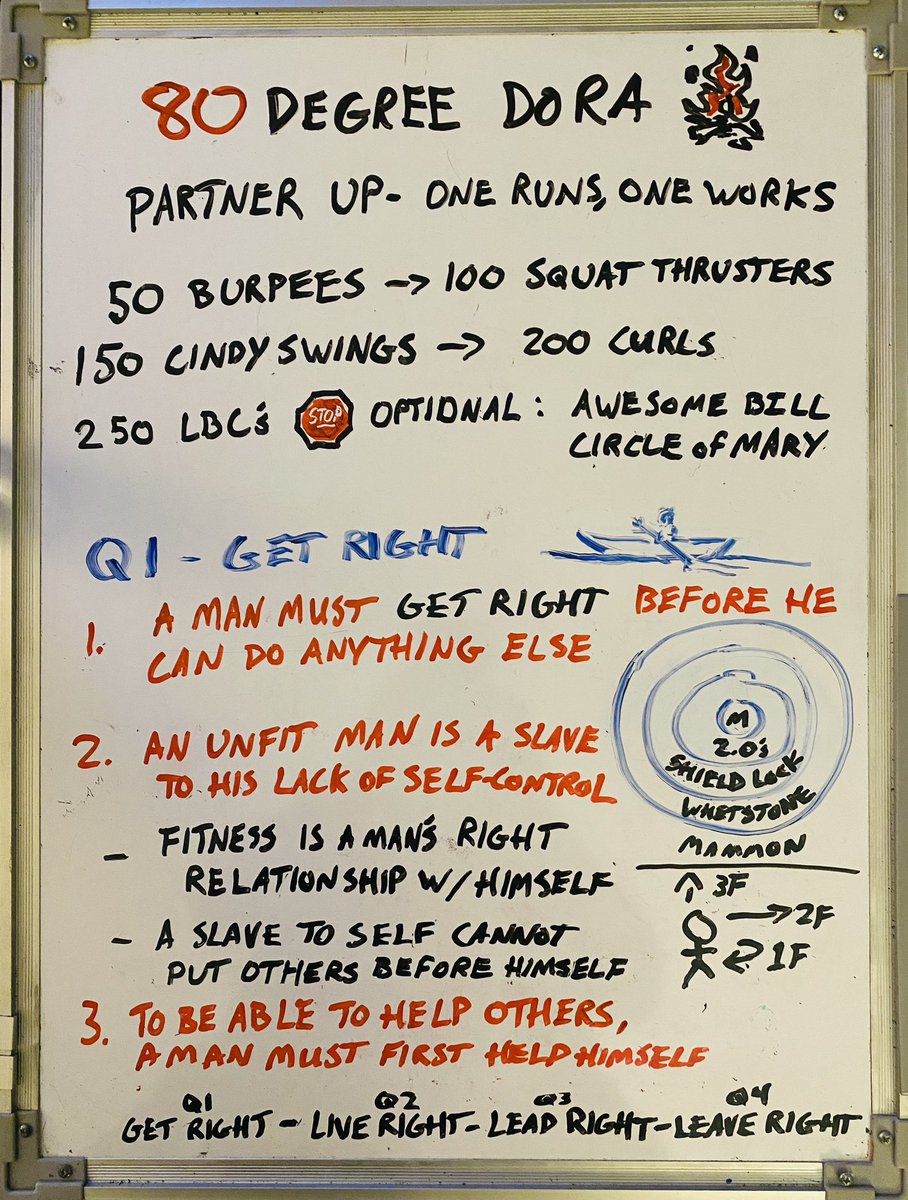 80 DEGREE DORA
PARTNER UP- ONE RUNS, ONE WORKS
50 BURPEES -> 100 SQUAT THRUSTERS
150 CINDY SWINGS -> 200 CURLS
250 LBC's STOP OPTIONAL: AWESOME BILL
CIRCLE of MARY
Q1 - GET RIGHT
1. A MAN MUST GET RIGHT BEFORE HE
CAN DO ANYTHING ELSE
2. AN UNFIT MAN IS A SLAVE
TO HIS LACK OF SELF-CONTROL
- FITNESS IS A MAN'S RIGHT
RELATIONSHIP W/ HIMSELF
- A SLAVE TO SELF CANNOT
PUT OTHERS BEFORE HIMSELF
M
2.0's
SHIELD LOCK
WHETSTONE
MAMMON
↑ 3F
→ 2F
1F
3. TO BE ABLE TO HELP OTHERS,
A MAN MUST FIRST HELP HIMSELF
Q1 Q2 Q3 Q4
GET RIGHT - LIVE RIGHT - LEAD RIGHT - LEAVE RIGHT